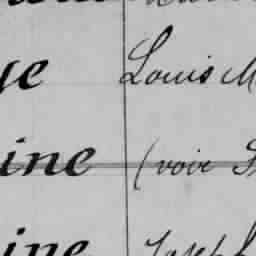 ye Louis M
ine (voir S
ine Joseph